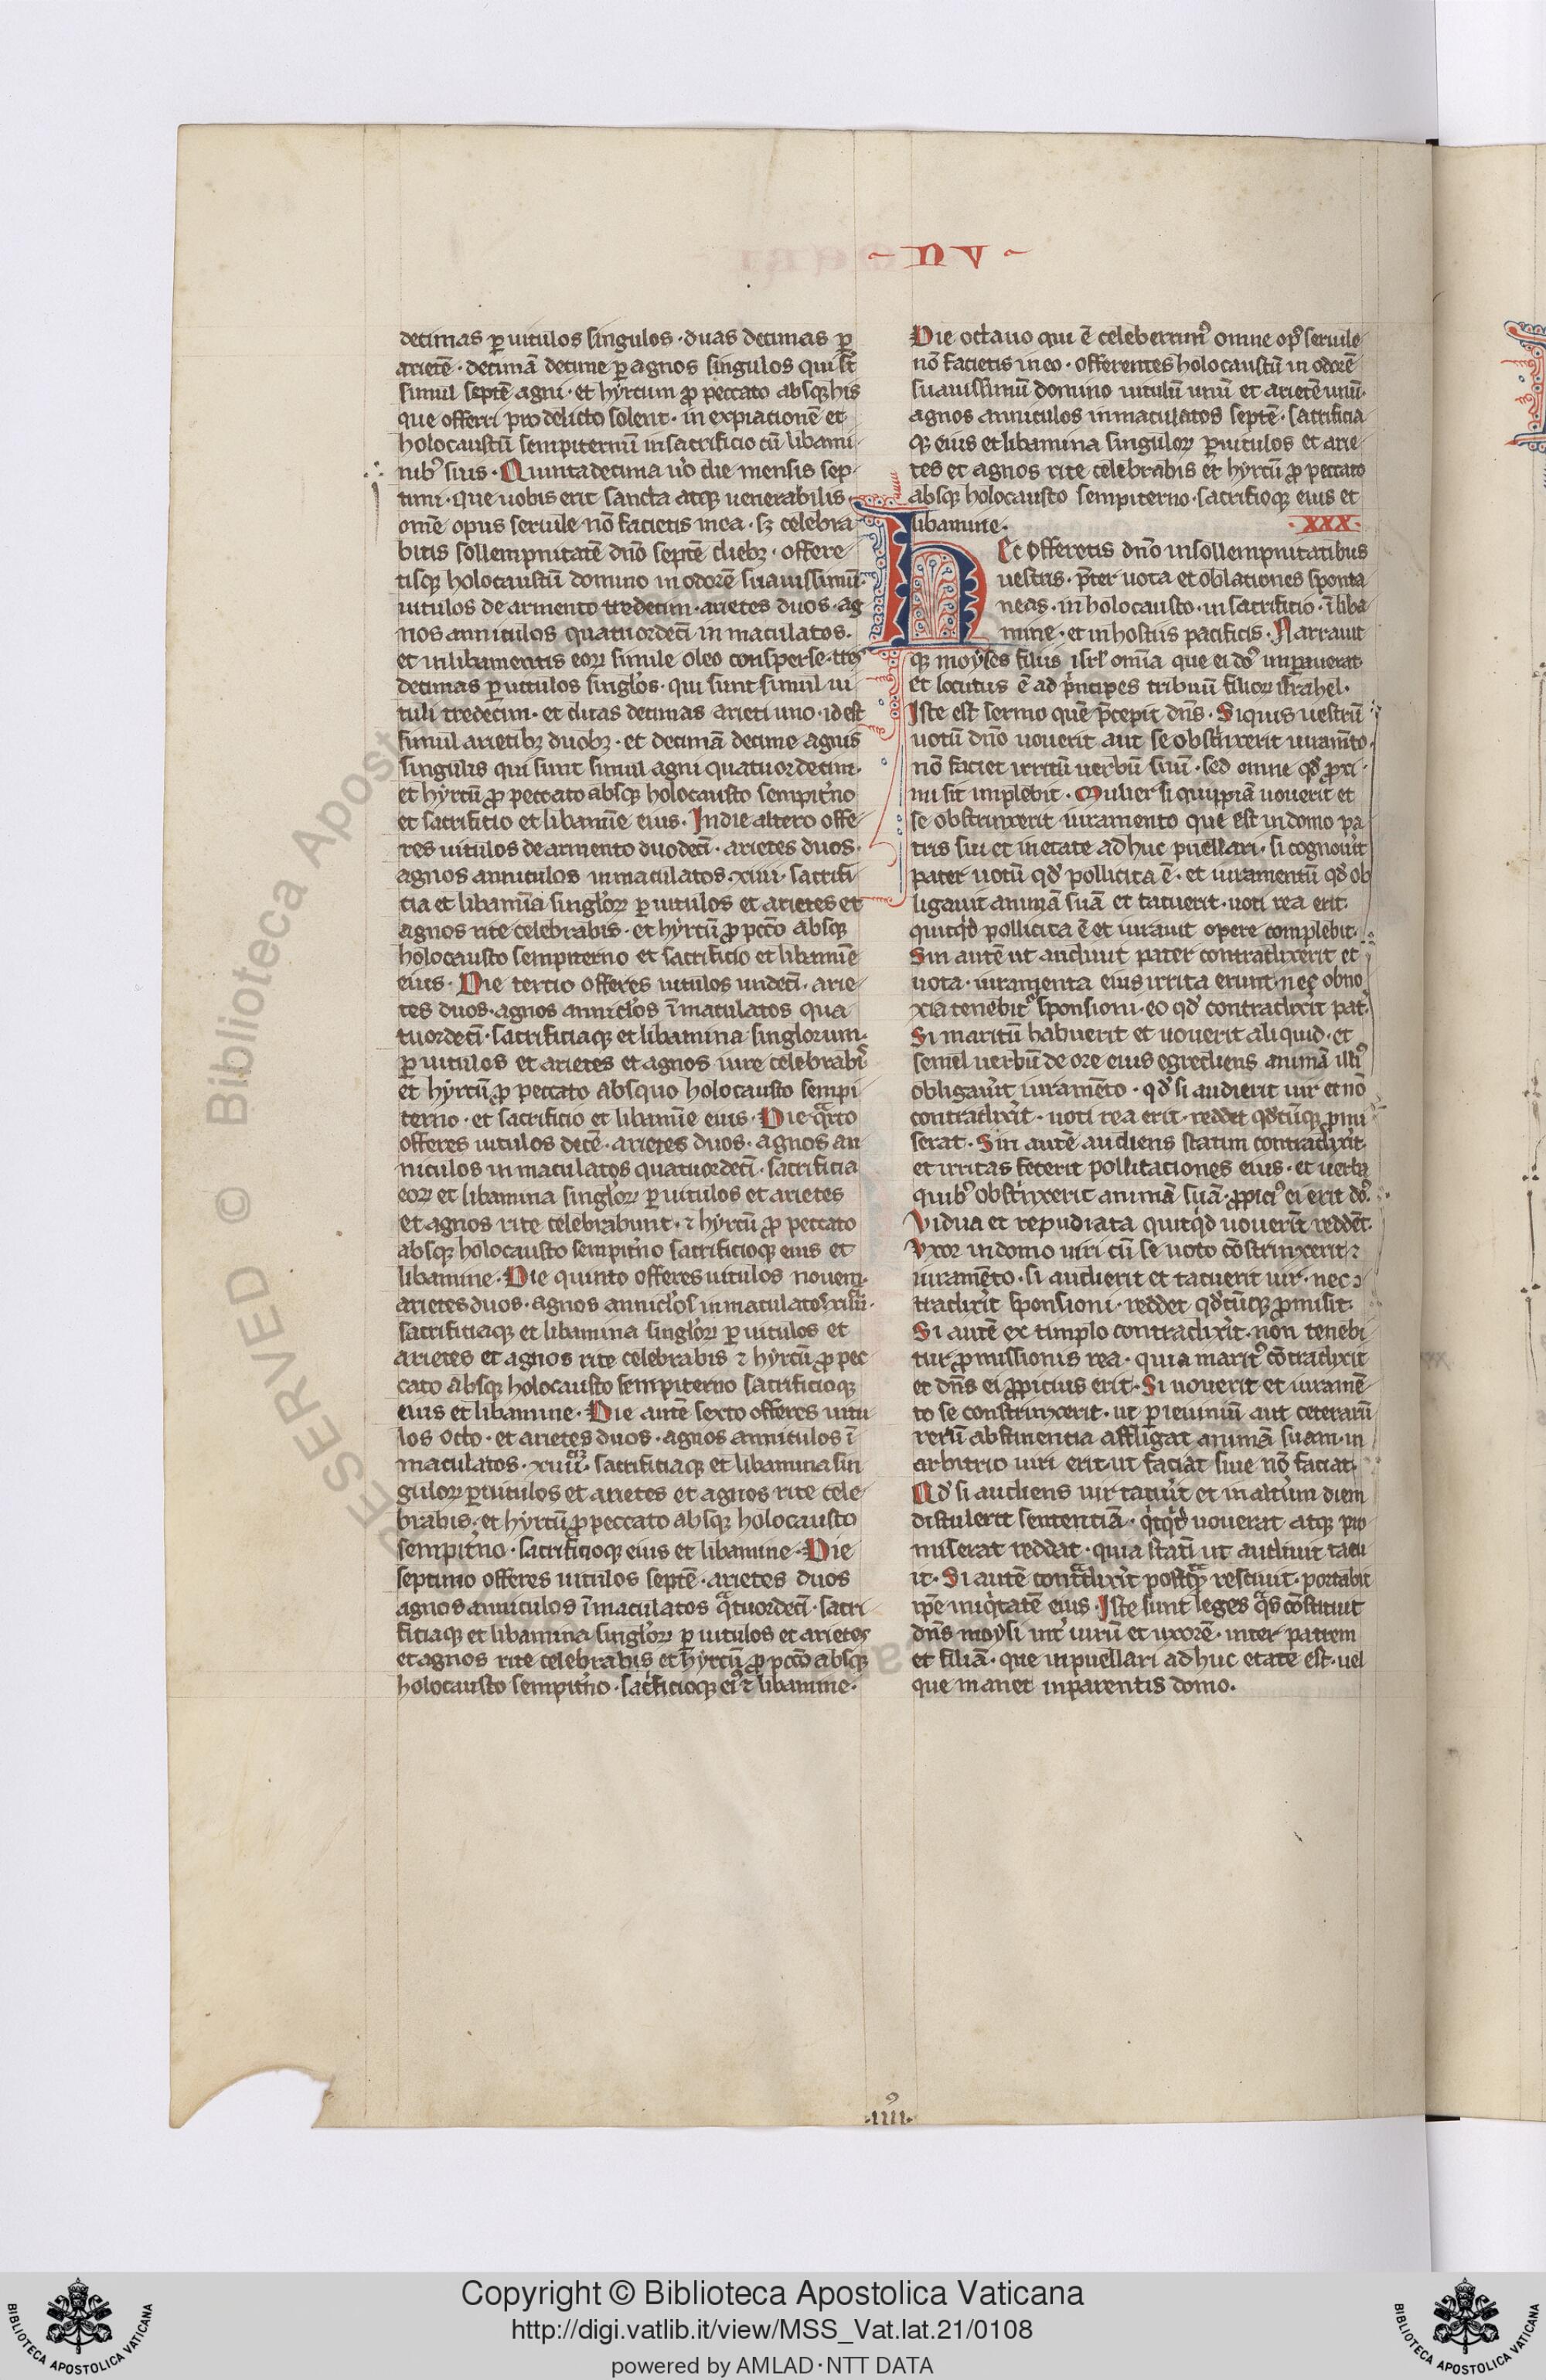 NV
decimas ꝑ uitulos singulos · duas decimas ꝑ
arietē · decimā decime ꝑ agnos singulos qui st̄
simul septē agni · et hyrcum ꝓ peccato absqꝫ his
que offerri pro delicto solent · in expiationē et
holocaustū sempiternū in sacrificio cū libami
nibꝰ suis · Quintadecima u̾o die mensis sep
timi · que uobis erit sancta atqꝫ uenerabilis
om̄e opus seruile nō facietis in ea · sꝫ celebra
bitis sollempnitatē dn̄o septē diebꝫ · offere
tisqꝫ holocaustū domino in odorē suauissimū ·
uitulos de armento tredecim · arietes duos · ag
nos anniculos quatuordecī inmaculatos ·
et in libamentis eoꝝ simile oleo consperse · tres
decimas ꝑ uitulos singl̾os · qui sunt simul ui
tuli tredecim · et duas decimas arieti uno · id est
simul arietibꝫ duobꝫ · et decimā decime agnis
singulis qui sunt simul agni quatuordecim ·
et hyrcū ꝓ peccato absqꝫ holocausto sempit̾no
et sacrificio et libamīe eius · In die altero offe
res uitulos de armento duodecī · arietes duos ·
agnos anniculos inmaculatos · xiiii · sacrifi
cia et libamīa singl̾oꝝ ꝑ uitulos et arietes et
agnos rite celebrabis · et hyrcū ꝓ pcc̄o absqꝫ
holocausto sempiterno et sacrificio et libamīe
eius · Die tercio offeres uitulos undecī · arie
tes duos · agnos annicl̾os īmaculatos qua
tuordecī · sacrificiaqꝫ et libamina singlorum ·
ꝑ uitulos et arietes et agnos iure celebrabis
et hyrcū ꝓ peccato absquo holocausto sempi
terno · et sacrificio et libamīe eius · Die qͣrto
offeres uitulos decē · arietes duos · agnos an
niculos inmaculatos quatuordecī · sacrificia
eoꝝ et libamina singl̾oꝝ ꝑ uitulos et arietes
et agnos rite celebrabunt · ⁊ hyrcū ꝓ peccato
absqꝫ holocausto sempit̾no sacrificioqꝫ eius et
libamine · Die quinto offeres uitulos nouem ·
arietes duos · agnos annicl̾os inmaculatos xiiii ·
sacrificiaqꝫ et libamina singl̾oꝝ ꝑ uitulos et
arietes et agnos rite celebrabis ⁊ hyrcū ꝓ pec
cato absqꝫ holocausto sempiterno sacrificioqꝫ
eius et libamine · Die autē sexto offeres uitu
los octo · et arietes duos · agnos anniculos ī
maculatos · xiiii · sacrificiaqꝫ et libamina sin
guloꝝ ꝑ uitulos et arietes et agnos rite cele
brabis · et hyrcū ꝓ peccato absqꝫ holocausto
sempit̾no · sacrificioqꝫ eius et libamine · Die
septimo offeres uitulos septē · arietes duos
agnos anniculos īmaculatos qͣtuordecī · sacri
ficiaqꝫ et libamina singl̾oꝝ ꝑ uitulos et arietes
et agnos rite celebrabis et hyrcū ꝓ pcc̄o absqꝫ
holocausto sempit̾no · sac̾ficioqꝫ eiꝰ ⁊ libamine ·
Die octauo qui ē celeberrimꝰ omne opꝰ seruile
nō facietis in eo · offerentes holocaustū in odorē
suauissimū domino uitulū unū et arietē unū ·
agnos anniculos inmaculatos septē · sacrificia
qꝫ eius et libamina singuloꝝ ꝑ uitulos et arie
tes et agnos rite celebrabis et hyrcū ꝓ peccato
absqꝫ holocausto sempiterno · sacrificioqꝫ eius et
libamine · · XXX ·
Hec offeretis dn̄o in sollempnitatibus
uestris · p̄ter uota et oblationes sponta
neas · in holocausto · in sacrificio · ī liba
mine · et in hostiis pacificis · Narrauit
qꝫ moyses filiis isrl̾ omīa que ei dn̄s imperauerat
et locutus ē ad pͥncipes tribuū filioꝝ israhel ·
Iste est sermo quē p̄cepit dn̄s · Siquis uestrū
uotū dn̄o uouerit aut se obstͥnxerit iuram̄to ·
nō faciet irritū uerbū suū · sed omne qd̾ ꝓmi
mi sit implebit · Mulier si quippiā uouerit et
se obstrinxerit iuramento que est in domo pa
tris sui et in etate adhuc puellari · si cognouit
pater uotū qd̾ pollicita ē · et iuramentū qd̾ ob
ligauit animā suā et tacuerit · uoti rea erit ·
quicqͥd pollicita ē et iurauit opere complebit ·
Sin autē ut audiuit pater contradixerit et
uota · iuramenta eius irrita erunt · nec obno
xia tenebit̾ sponsioni · eo qd̾ contradixit pat̾ ·
Si maritū habuerit et uouerit aliquid · et
semel uerbū de ore eius egrediens animā illiꝰ
obligau̾it iuramēto · qd̾ si audierit uir et nō
contradix̾it · uoti rea erit · reddet qd̾cūqꝫ ꝓmi
serat · Sin autē audiens statim contradix̾it
et irritas fecerit pollicitationes eius · et uerba
quibꝰ obstͥnxerit animā suā · ꝓpiciꝰ ei erit dn̄s ·
Vidua et repudiata quicqͥd uouerīt reddēt ·
Vxor in domo uiri cū se uoto cōstrinxerit ⁊
iuramēto · si audierit et tacuerit uir · nec ꝯ
tradix̾it sponsioni · reddet qd̾cūqꝫ ꝓmisit ·
Si autē extimplo contradix̾it · non tenebi
tur ꝓmissionis rea · quia maritꝰ cōtradixit
et dn̄s ei ꝓpitius erit · Si uouerit et iuramē
to se constrinxerit · ut ꝑ ieiuniū aut ceterarū
rerū abstinentia affligat animā suam · in
arbitrio uiri erit · ut faciat siue nō faciat ·
Qd̾ si audiens uir tacu̾it et in alt̾um diem
distulerit sententiā · qͥcqͥd uouerat atqꝫ pro
miserat reddat · quia statī ut audiuit tacu
it · Si autē contͣdix̾it postqͣꝫ resciuit · portabit
ip̄e iniqͥtatē eius · Iste sunt leges qͣs cōstituit
dn̄s moysi int̾ uirū et uxorē · inter patrem
et filiā · que in puellari adhuc etate est · uel
que manet in parentis domo ·
·iiii·
Copyright © Biblioteca Apostolica Vaticana
http://digi.vatlib.it/view/MSS_Vat.lat.21/0108
powered by AMLAD·NTT DATA
BIBLIOTECA APOSTOLICA VATICANA
BIBLIOTECA APOSTOLICA VATICANA